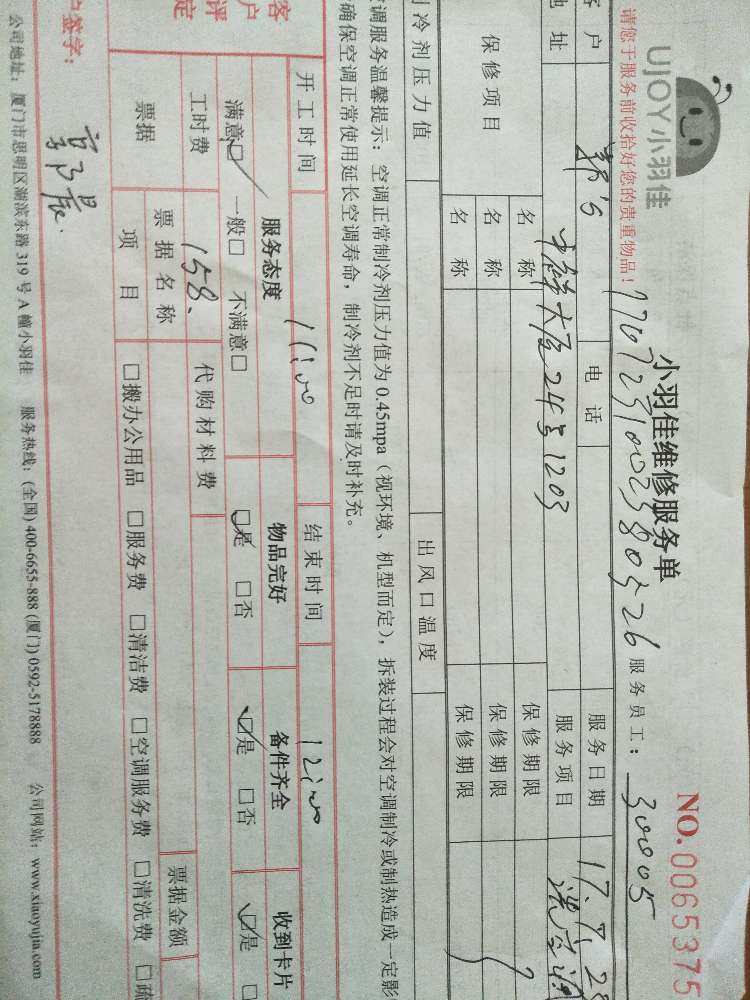 UJOY小羽佳
小羽佳维修服务单
NO.0065375
请您于服务前收拾好您的贵重物品!
服务员工: 30005
客户
电话
服务日期 17.7.28
地址
大厦24号1203
服务项目
保修项目
名称
保修期限
名称
保修期限
名称
保修期限
制冷剂压力值
出风口温度
空调服务温馨提示: 空调正常制冷剂压力值为0.45mpa (视环境、机型而定), 拆装过程会对空调制冷或制热造成一定影
确保空调正常使用延长空调寿命, 制冷剂不足时请及时补充。
开工时间 11:00
结束时间 12:00
客户评定
服务态度
物品完好
备件齐全
收到卡片
满意☑ 一般□ 不满意□
☑是 □否
☑是 □否
☑是 □
工时费 158.
代购材料费
票据
票据名称
票据金额
项目
□搬办公用品 □服务费 □清洁费 □空调服务费 □清洗费 □疏
户签字:
公司地址: 厦门市思明区湖滨东路319号A幢小羽佳 服务热线: (全国) 400-6655-888 (厦门) 0592-5178888 公司网站: www.xiaoyujia.com